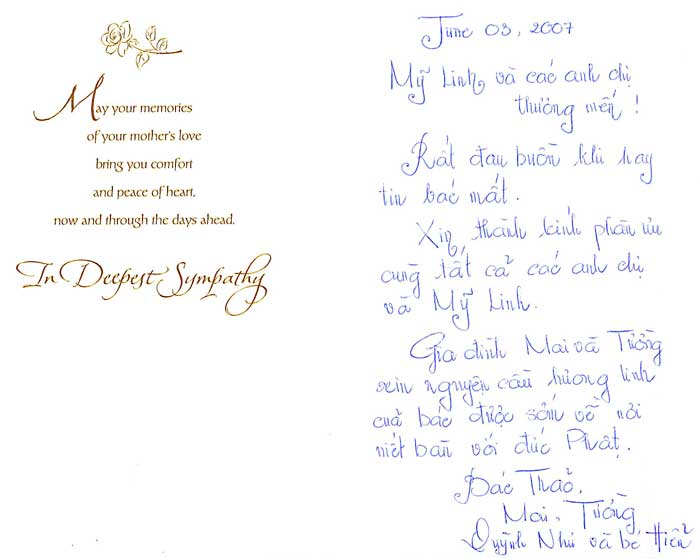 May your memories
of your mother's love
bring you comfort
and peace of heart,
now and through the days ahead.
In Deepest Sympathy
June 03, 2007
Mỹ Linh và các anh chị
thương mến!
Rất đau buồn khi hay
tin bác mất.
Xin thành kính phân ưu
cùng tất cả các anh chị
và Mỹ Linh.
Gia đình Mai và Tưởng
xin nguyện cầu hương linh
của bác được sớm về nơi
niết bàn với đức Phật.
Bác Thảo,
Mai, Tưởng
Quỳnh Nhi và bé Hiển